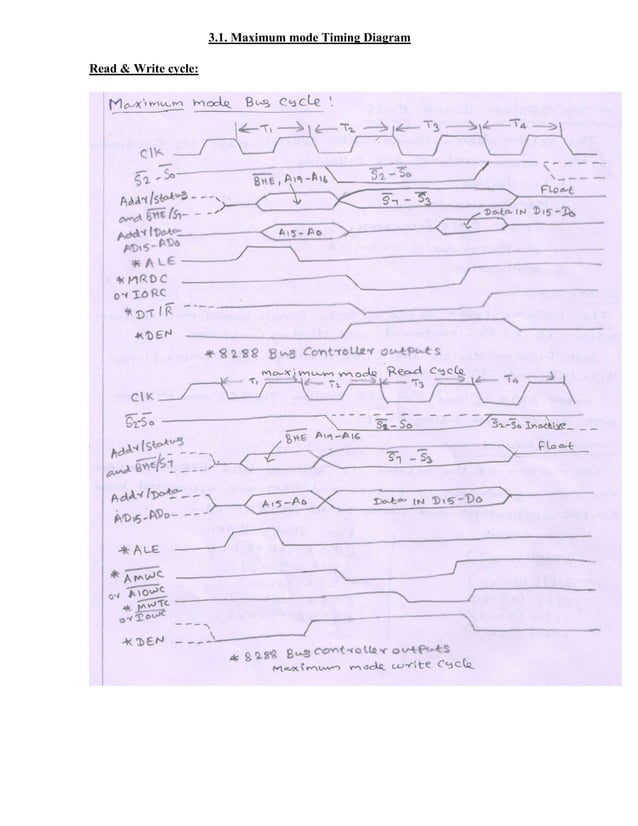 3.1. Maximum mode Timing Diagram
Read & Write cycle:
Maximum mode Bus Cycle :
T1 T2 T3 T4
Clk
S̅2̅ - S̅0̅ S̅2̅ - S̅0̅
B̅H̅E̅, A19-A16 Float
Addr/Status S̅7̅ - S̅3̅
and B̅H̅E̅/S7
Addr/Data A15-A0 Data IN D15-D0
AD15-AD0
* ALE
* M̅R̅D̅C̅
or I̅O̅R̅C̅
* DT/R̅
* D̅E̅N̅
* 8288 Bus Controller outputs
maximum mode Read Cycle
T1 T2 T3 T4
Clk
S̅2̅-S̅0̅ S̅2̅-S̅0̅ S̅2̅-S̅0̅ Inactive
B̅H̅E̅ A19-A16 Float
Addr/Status S̅7̅ - S̅3̅
and B̅H̅E̅/S7
Addr/Data A15-A0 Data IN D15-D0
AD15-AD0
* ALE
* A̅M̅W̅C̅
or A̅I̅O̅W̅C̅
* M̅W̅T̅C̅
or I̅O̅W̅C̅
* DEN
* 8288 Bus Controller outputs
Maximum mode write Cycle